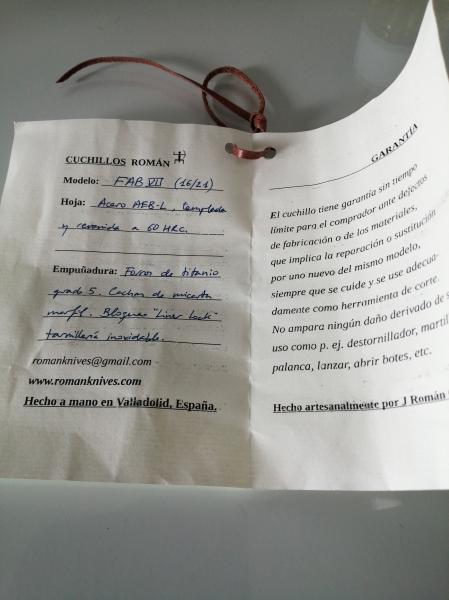 CUCHILLOS ROMÁN
Modelo: FAB VII (16/21)
Hoja: Acero AEB-L, templada
y revenida a 60 HRC.
Empuñadura: Forros de titanio
grado 5. Cachas de micarta
marfil. Bloqueo "liner lock"
tornillería inoxidable.
romanknives@gmail.com
www.romanknives.com
Hecho a mano en Valladolid, España.
GARANTÍA
El cuchillo tiene garantía sin tiempo
límite para el comprador ante defectos
de fabricación o de los materiales,
que implica la reparación o sustitución
por uno nuevo del mismo modelo,
siempre que se cuide y se use adecua-
damente como herramienta de corte.
No ampara ningún daño derivado de s
uso como p. ej. destornillador, martil
palanca, lanzar, abrir botes, etc.
Hecho artesanalmente por J Román